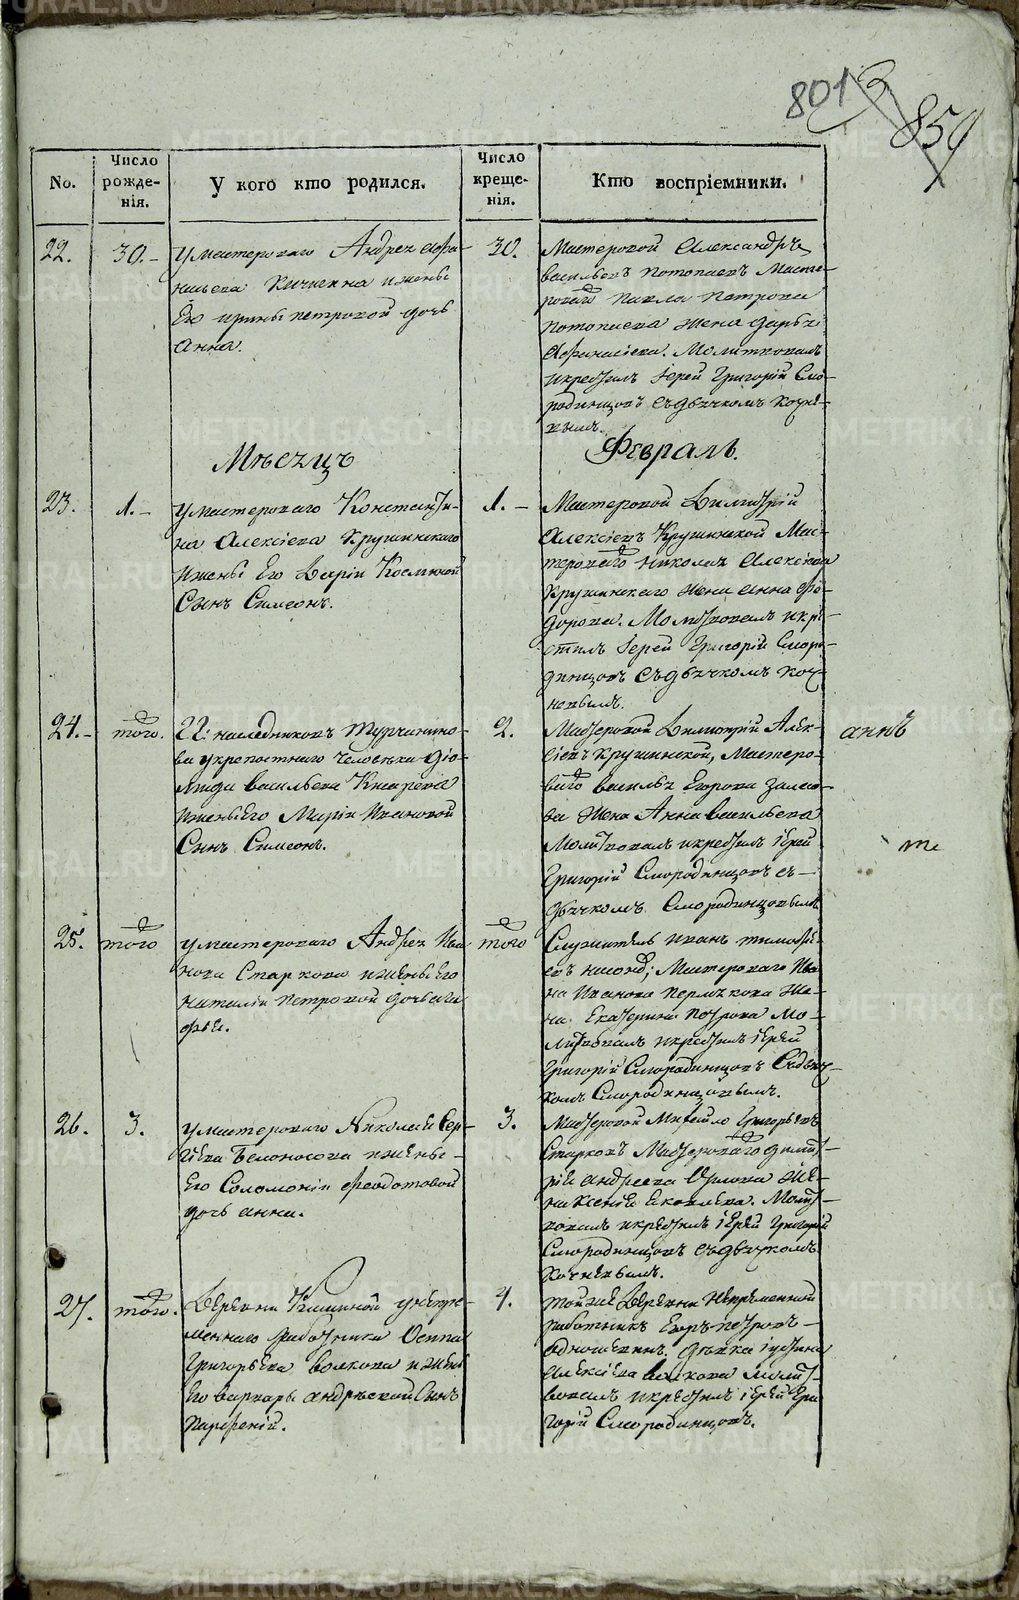 801
859
No.
Число рожде-нія.
У кого кто родился.
Число креще-нія.
Кто воспріемники.
22.
30.-
У мастероваго Андрея Афа-
насьева Кичигина и жены
Его ирины петровой дочь
Анна.
30.
Мастеровой Александръ
васильевъ Потопаевъ Масте-
роваго Павла Петрова
Потопаева жена дарья
Афанасіева. Молитвовалъ
и крестилъ Іерей Григорій Смо-
родинцовъ съ дьячкомъ Кочне-
вымъ.
Мѣсяцъ
Февраль.
23.
1.-
У мастероваго Константи-
на Алексіева Кружинскаго
и жены Его
Сынъ Симеонъ.
1.-
Мастеровой Димитрій
Алексіевъ Кружинской Мас-
тероваго Николая Алексіева
Кружинскаго жена Анна Фео-
дорова. Молитвовалъ и кре-
стилъ Іерей Григорій Сморо-
динцовъ съ дьячкомъ Коч-
невымъ.
24.-
того.
ГГ: наследниковъ Турчанино-
ва у крепостнаго человека Діо-
мида васильева
и жены Его Маріи Ивановой
Сынъ Симеонъ.
2.
Мастеровой Димитрій Алек-
сіевъ Кружинской, Мастеро-
ваго василья Егорова
жена Анна васильева
Молитвовалъ и крестилъ іерей
Григорій Смородинцовъ съ
дьячкомъ Смородинцовымъ
аннѣ
те
25.
того
У мастероваго Андрея Ива-
нова Старкова и жены Его
наталіи петровой дочь
того
Служитель иванъ тимофе-
евъ Мастероваго Ива-
на Иванова Пермякова же-
на Екатерина Петрова Мо-
литвовалъ и крестилъ іерей
Григорій Смородинцовъ Съ дьяч-
комъ Смородинцовымъ.
26.
3.
У мастероваго Николая Сер-
гіева Белоносова и жены
Его Соломоніи феодотовой
дочь анна.
3.
Мастеровой Михайло Григорьевъ
Старковъ Мастероваго димит-
рія андреева Орлова же-
на Ксенія Яковлева. Молит-
вовалъ и крестилъ іерей Григорій
Смородинцовъ съ дьячкомъ
Кочневымъ.
27.
того.
Деревни Кашиной у непре-
меннаго работника Осипа
Григорьева волкова и жены
Его варвары андреевой Сынъ
Парфеній.
4.
Той же Деревни Непременной
работникъ Егоръ петровъ
дѣвка іустина
Алексіева волкова Молит-
вовалъ и крестилъ іерей Гри-
горій Смородинцовъ.
METRIKI.GASU-URAL.RU